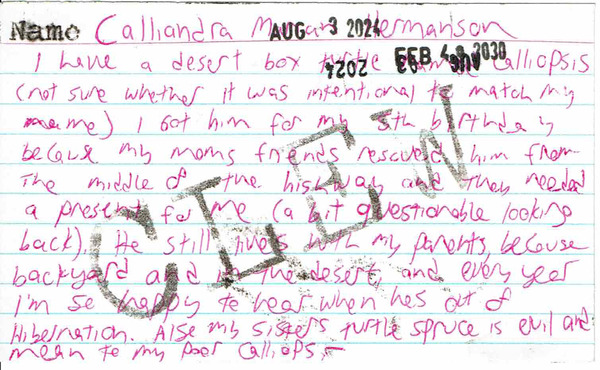 Name Calliandra Hermanson
AUG 3 2024
FEB 2030
I have a desert box turtle Calliopsis
AUG 23 2024
(not sure whether it was intentional to match my
name) I got him for my 5th birthday
because my moms friends rescued him from
the middle of the highway and they needed
a present for me (a bit questionable looking
back). He still lives with my parents, because
backyard and in the desert, and every year
I'm so happy to hear when hes out of
Hibernation. Also my sisters turtle spruce is evil and
mean to my poor Calliops
CLEW